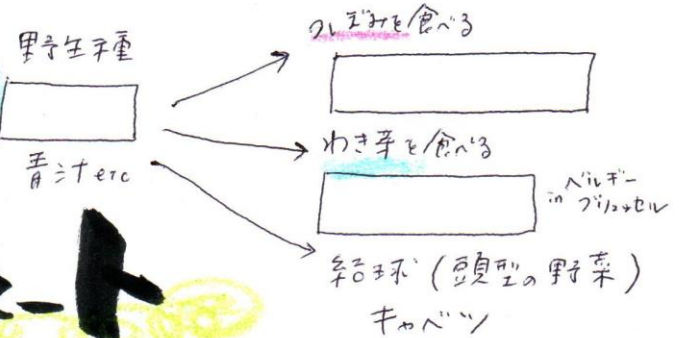 野生種
青汁etc
つぼみを食べる
わき芽を食べる
in ベルギー
ブリュッセル
結球(頭型の野菜)
キャベツ
ート